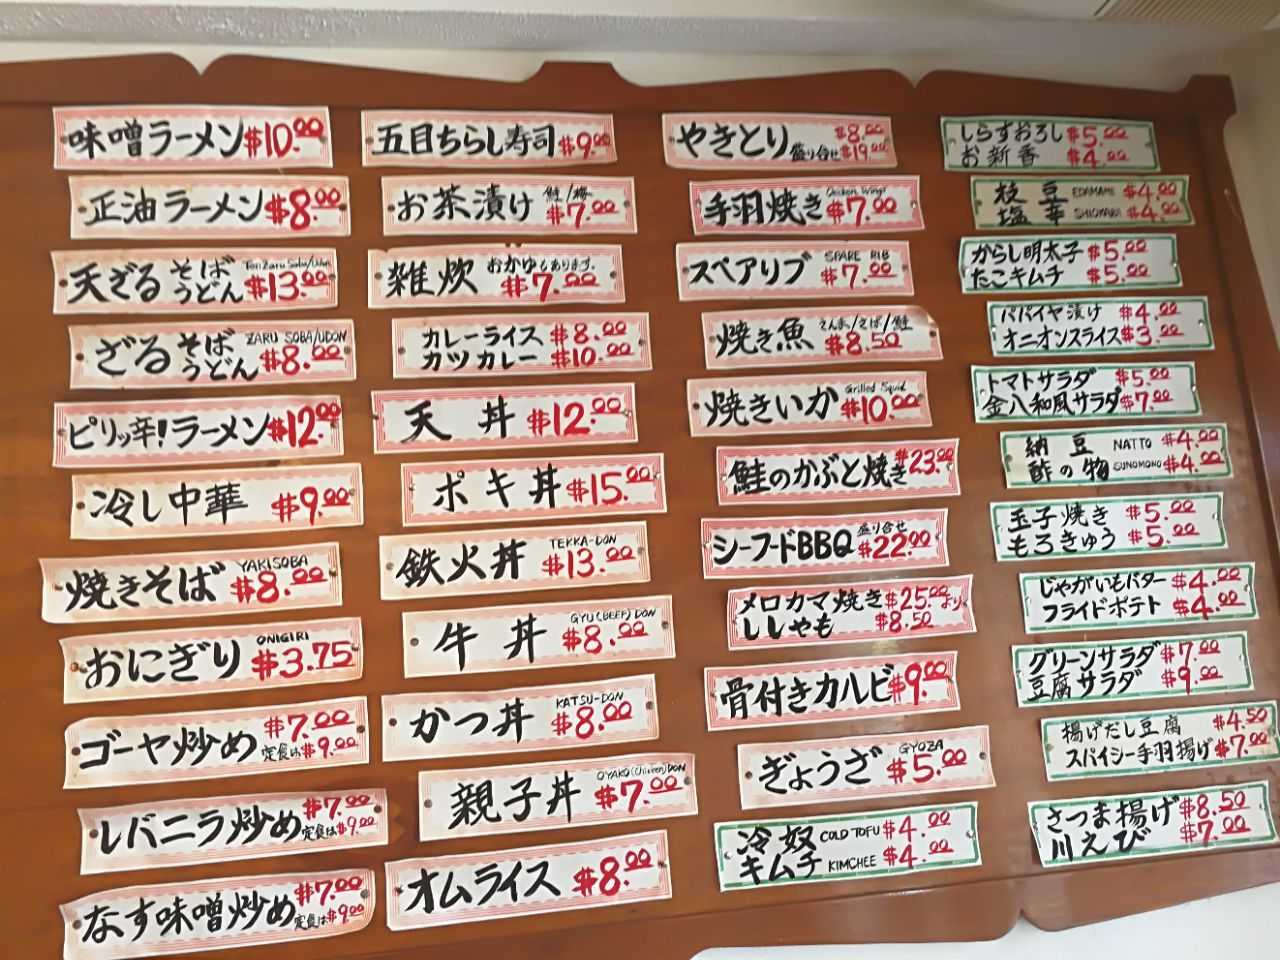 味噌ラーメン $10.00
正油ラーメン $8.00
天ざる そば うどん Ten Zaru Soba/Udon $13.00
ざる そば うどん ZARU SOBA/UDON $8.00
ピリッ辛!ラーメン $12.00
冷し中華 $9.00
焼きそば YAKISOBA $8.00
おにぎり ONIGIRI $3.75
ゴーヤ炒め $7.00 定食は$9.00
レバニラ炒め $7.00 定食は$9.00
なす味噌炒め $7.00 定食は$9.00
五目ちらし寿司 $9.00
お茶漬け 鮭/梅 $7.00
雑炊 おかゆもあります。 $7.00
カレーライス $8.00
カツカレー $10.00
天丼 $12.00
ポキ丼 $15.00
鉄火丼 TEKKA-DON $13.00
牛丼 GYU(BEEF)DON $8.00
かつ丼 KATSU-DON $8.00
親子丼 OYAKO(Chicken)DON $7.00
オムライス $8.00
やきとり $8.00
盛り合せ $19.00
手羽焼き Chicken Wings $7.00
スペアリブ SPARE RIB $7.00
焼き魚 さんま/さば/鮭 $8.50
焼きいか Grilled Squid $10.00
鮭のかぶと焼き $23.00
シーフードBBQ 盛り合せ $22.00
メロカマ焼き $25.00より
ししゃも $8.50
骨付きカルビ $9.00
ぎょうざ GYOZA $5.00
冷奴 COLD TOFU $4.00
キムチ KIMCHEE $4.00
しらすおろし $5.00
お新香 $4.00
枝豆 EDAMAME $4.00
塩辛 SHIOKARA $4.00
からし明太子 $5.00
たこキムチ $5.00
パパイヤ漬け $4.00
オニオンスライス $3.00
トマトサラダ $5.00
金八和風サラダ $7.00
納豆 NATTO $4.00
酢の物 SUNOMONO $4.00
玉子焼き $5.00
もろきゅう $5.00
じゃがいもバター $4.00
フライドポテト $4.00
グリーンサラダ $7.00
豆腐サラダ $9.00
揚げだし豆腐 $4.50
スパイシー手羽揚げ $7.00
さつま揚げ $8.50
川えび $7.00